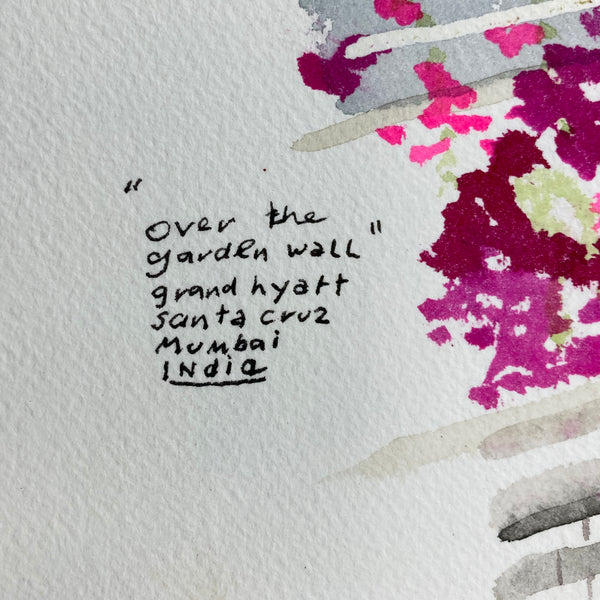 "
over the
garden wall"
grand hyatt
santa cruz
Mumbai
INdia